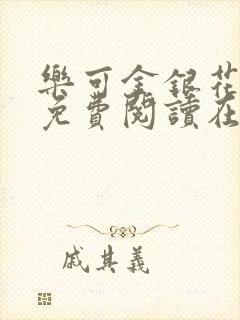 樂可金銀花
免費閱讀在
戚其義